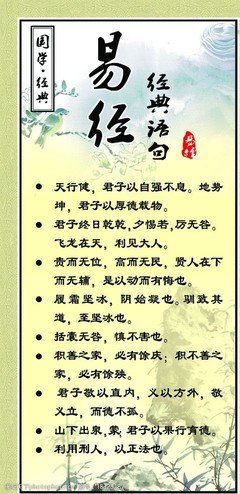 国学·经典
易经
经典语句
天行健，君子以自强不息。地势
坤，君子以厚德载物。
君子终日乾乾，夕惕若，厉无谷。
飞龙在天，利见大人。
贵而无位，高而无民，贤人在下
而无辅，是以动而有悔也。
履霜坚冰，阴始凝也。驯致其
道，至坚冰也。
括囊无谷，慎不害也。
积善之家，必有馀庆；积不善之
家，必有馀殃。
君子敬以直内，义以方外，敬
义立，而德不孤。
山下出泉，蒙；君子以果行育德。
利用刑人，以正法也。